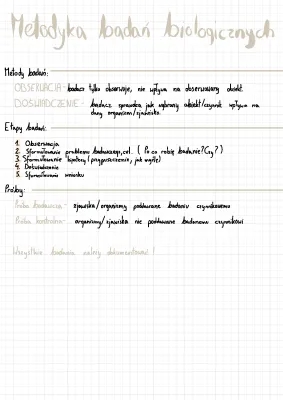 Metodyka badań biologicznych
Metody badań:
OBSERWACJA - badacz tylko obserwuje, nie wpływa na obserwowany obiekt.
DOŚWIADCZENIE - badacz sprawdza, jak wybrany obiekt/czynnik wpływa na
dany organizm/zjawisko.
Etapy badań:
1. Obserwacja
2. Sformułowanie problemu badawczego, cel. ( Po co robię badanie? Czy? )
3. Sformułowanie hipotezy ( przypuszczenie, jak wyjdzie)
4. Doświadczenie
5. Sformułowanie wniosku
Próby:
Próba badawcza - zjawiska/organizmy poddawane badaniu czynnikowemu
Próba kontrolna - organizmy/zjawiska nie poddawane badanemu czynnikowi
Wszystkie badania należy dokumentować!